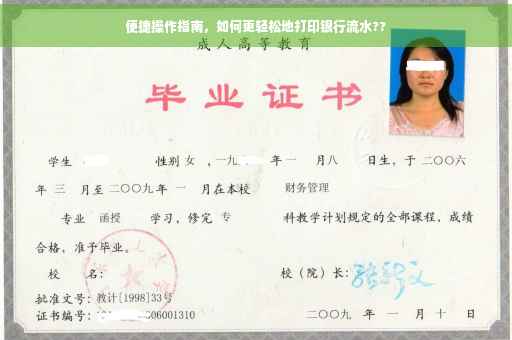 便捷操作指南，如何更轻松地打印银行流水??
成人高等教育
毕业证书
学生 性别 女 ，一九 年 一 月八 日生，于 二〇〇六
年 三 月至 二〇〇九 年 一 月在本校 财务管理
专业 函授 学习，修完 专 科教学计划规定的全部课程，成绩
合格，准予毕业。
校 名： 校（院）长：
批准文号：教计[1998]33号
证书编号： 06001310 二〇〇九 年 一 月 十 日